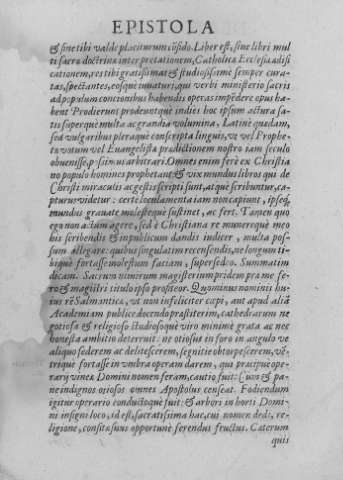 EPISTOLA
& sine tibi valde placiturum iisdo. Liber est, sine libri mul
ti sacrę doctrinæ interpretationem, Catholicæ Ecclesiæ ædifi
cationem, res tibi gratissimas & studiosissimè semper cura-
tas, spectantes, eosque iuuaturi, qui verbi ministerio sacris
ad populum concionibus habendis operas impēdere opus ha-
bent Prodierunt prodeuntque indies hoc ipsum actura sa-
tis superque multa ac grandia volumina. Latinè quædam,
sed vulgaribus pleraque conscripta linguis, vt vel Prophe-
ta vatum vel Euangelista prædictionem nostro iam seculo
obuenisse, possimus arbitrari. Omnes enim ferè ex Christia
no populo homines prophetant: & vix mundus libros qui de
Christi miraculis ac gestis scripti sunt, atque scribuntur, ca-
pturus videtur: certè loculamenta iam non capiunt, ipseque
mundus grauatè molestèque sustinet, ac fert. Tamen quo
ego non actum agere, sed è Christiana re munereque meo
his scribendis & in publicum dandis indicer, multa pos-
sum allegare: quibus singulatim recensendis, ne longum ti-
bique fortasse molestum faciam, supersedeo. Summatim
dicam. Sacrum vtinum magisterium pridem præ me fe-
ro & magistri titulo ipso profiteor. Quominus nominis hu-
ius rē Salmanticæ, vt non infeliciter cæpi, aut apud aliā
Academiam publicè docendo præstiterim, cathedrarum ne
gotiosa & religioso studiosoque viro minimè grata ac nec
honesta ambitio deterruit: ne otiosus in foro in angulo ve
aliquo sederem ac delitescerem, segnitie obtorpescerem, vē-
trique fortasse in vmbra operam darem, qui præcipuè ope-
rarÿ vineæ Domini nomen feram, cautio fuit: Cum & pa-
ne indignos otiosos omnes Apostolus censeat. Fodiendum
igitur operario conductoque fuit: & arbori in horti Domi-
ni insigni loco, id est, sacratissima hac, cui nomen dedi, re-
ligione, consitæ suus opportunè ferendus fructus. Cæterum
quis